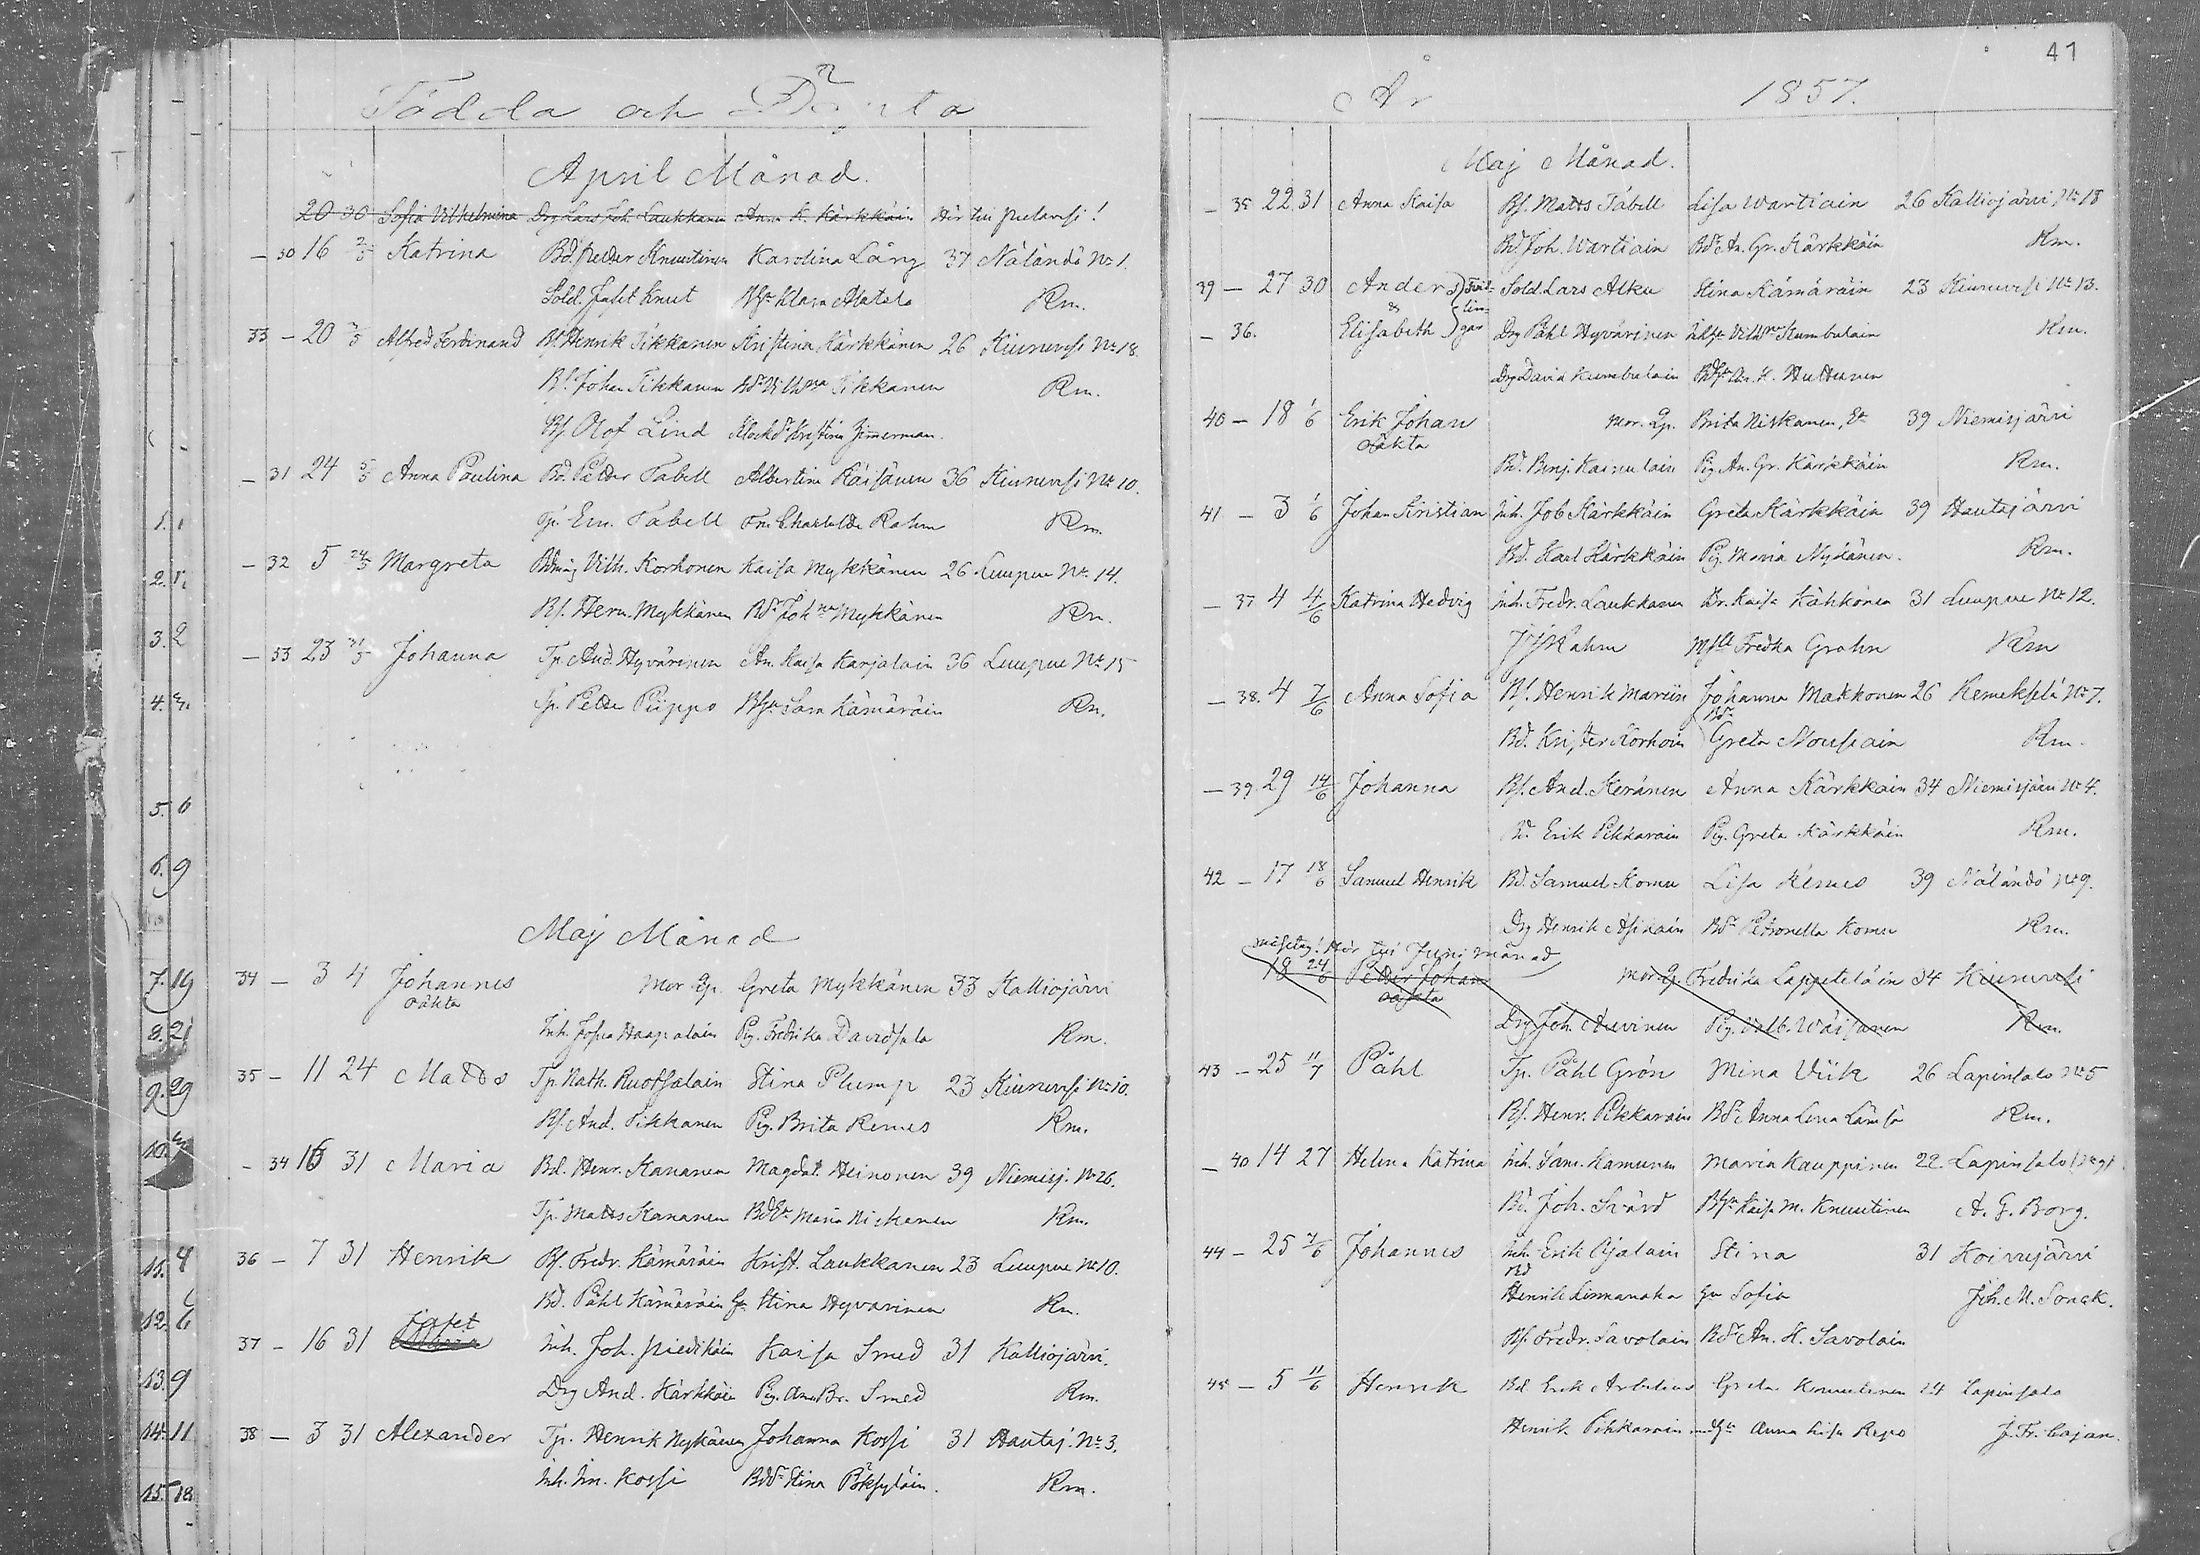 Födda och Döpta
April Månad.
20 30 Sofia Vilhelmina Drg Lars Joh. Laukkanen Anna K. Kärkkäin Hör till Pielavesi!
— 30 16 2/5 Katrina Bd. Petter Knuutinen Karolina Lång 37 Näländö No 1.
Sold. Jafet Knut Klara Alatalo Rm.
33 — 20 3/5 Alfred Ferdinand Bf. Henrik Tikkanen Kristina Kärkkänen 26 Kiuruvesi No 18.
Bf. Johan Tikkanen Bdr Vilhna Tikkanen Rm.
Bf. Olof Lind Klockdr Kristina Zimerman.
— 31 24 5/5 Anna Paulina Bd. Petter Tabell Albertina Räisänen 36 Kiuruvesi No 10.
Tp. Em. Tabell Frn Charlotta Rahm Rm.
— 32 5 24/5 Margreta Bdmåg Vilh. Korhonen Kaisa Mykkänen 26 Luupuve No. 14.
Bf. Herm. Mykkänen Bdr Johna Mykkänen Rm.
— 33 23 31/5 Johanna Tp. And. Hyvärinen An. Kaisa Karjalain 36 Luupuve No 15
Tp. Petter Piippo Sara Kämäräin Rm.
Maj Månad
34 — 3 4 Johannes Mor. Ep. Greta Mykkänen 33 Kalliojärvi
oäkta
Inh. Josua Haapalain Pig. Fredrika Davidsala Rm.
35 — 11 24 Matts Tp. Nath. Ruotsalain Stina Plump 23 Kiuruvesi No 10.
Bf. And. Tikkanen Pig. Brita Remes Rm.
— 34 16 31 Maria Bd. Henr. Kananen Magdal. Heinonen 39 Niemisj. No 26.
Tp. Matts Kananen Maria Niskanen Rm.
36 — 7 31 Henrik Bf. Fredr. Kämäräin Krist. Laukkanen 23 Luupuve No 10.
Bd. Påhl Kämäräin Stina Hyvärinen Rm.
Jafet
37 — 16 31 Inh. Joh. Piedikäin Kaisa Smed 31 Kalliojärvi.
Drg And. Kärkkäin Pig. Anna Br. Smed Rm.
38 — 3 31 Alexander Tp. Henrik Nykänen Johanna Kossi 31 Hautaj. No 3.
Inh. Kossi Stina Pöksyläin. Rm.
1.
2.
3. 2
4.
5. 6
6. 9
7. 19
8. 21
9. 29
10.
11. 4
12. 6
13. 9
14. 11
15. 18
41
År 1857.
Maj Månad.
— 35 22 31 Anna Kaisa Bf. Matts Tabell Lisa Wartiain 26 Kalliojärvi No 18
Bd. Joh. Wartiain Bdr An. Gr. Kärkkäin Rm.
39 — 27 30 Anders Tvil- Sold. Lars Alku Stina Kämäräin 23 Kiuruvesi No 13.
& lin-
— 36. Elisabeth gar Drg Påhl Hyvärinen Vilhna Kumbulain Rm.
Drg David Kumbulain An. K. Huttunen
40 — 18 1/6 Erik Johan Mor. Ep. Brita Niskanen, 39 Niemisjärvi
oäkta
Bd. Benj. Kainulain Pig An. Gr. Kärkkäin Rm.
41 — 3 1/6 Johan Kristian Inh. Job Kärkkäin Greta Kärkkäin 39 Hautajärvi
Bd. Karl Kärkkäin Pig. Maria Nykänen. Rm.
— 37 4 4/6 Katrina Hedvig Inh. Fredr. Laukkanen Kaisa Kähkönen 31 Luupuve No 12.
J J Rahm Mslle Fredka Grohn Rm
— 38. 4 7/6 Anna Sofia Bf. Henrik Martin Johanna Makkonen 26 Remekselä No 7.
Bd. Krister Korhoin Bdr Greta Nousiain Rm.
— 39. 29 14/6 Johanna Bf. And. Keränen Anna Kärkkäin 34 Niemisjärvi No 4.
Bd. Erik Pikkarain Pig. Greta Kärkkäin Rm.
42 — 17 18/6 Samuel Henrik Bd. Samuel Komu Lisa Remes 39 Näländö No 9.
Drg Henrik Asikain Bdr Petronella Komu Rm.
misstag! Hör till Juni månad
18 24/6 Petter Johan Mor. Ep. Fredrika Lappeteläin 34 Kiuruvesi
oäkta
Drg Joh. Auvinen Pig. Valb. Wäisänen Rm.
43 — 25 11/7 Påhl Tp. Påhl Grön Mina Viik 26 Lapinsalo No 5
Bf. Henr. Pikkarain Bdr Anna Lena Lämsä Rm.
— 40 14 27 Helena Katrina Inh. Sam. Kamunen Maria Kauppinen 22 Lapinsalo
Bd. Joh. Svärd Kaisa M. Knuutinen A. G. Borg.
44 — 25 7/6 Johannes Inh. Erik Ojalain Stina 31 Koivujärvi
Bd Henrik Linnanaka Sofia Joh. M. Sonck.
Bf. Fredr. Savolain Bdr An. H. Savolain
45 — 5 11/6 Henrik Bd. Erik Arbelius Greta Knuutinen 24 Lapinsalo
Henrik Pikkarain Anna Lisa Repo J. Fr. Cajan.